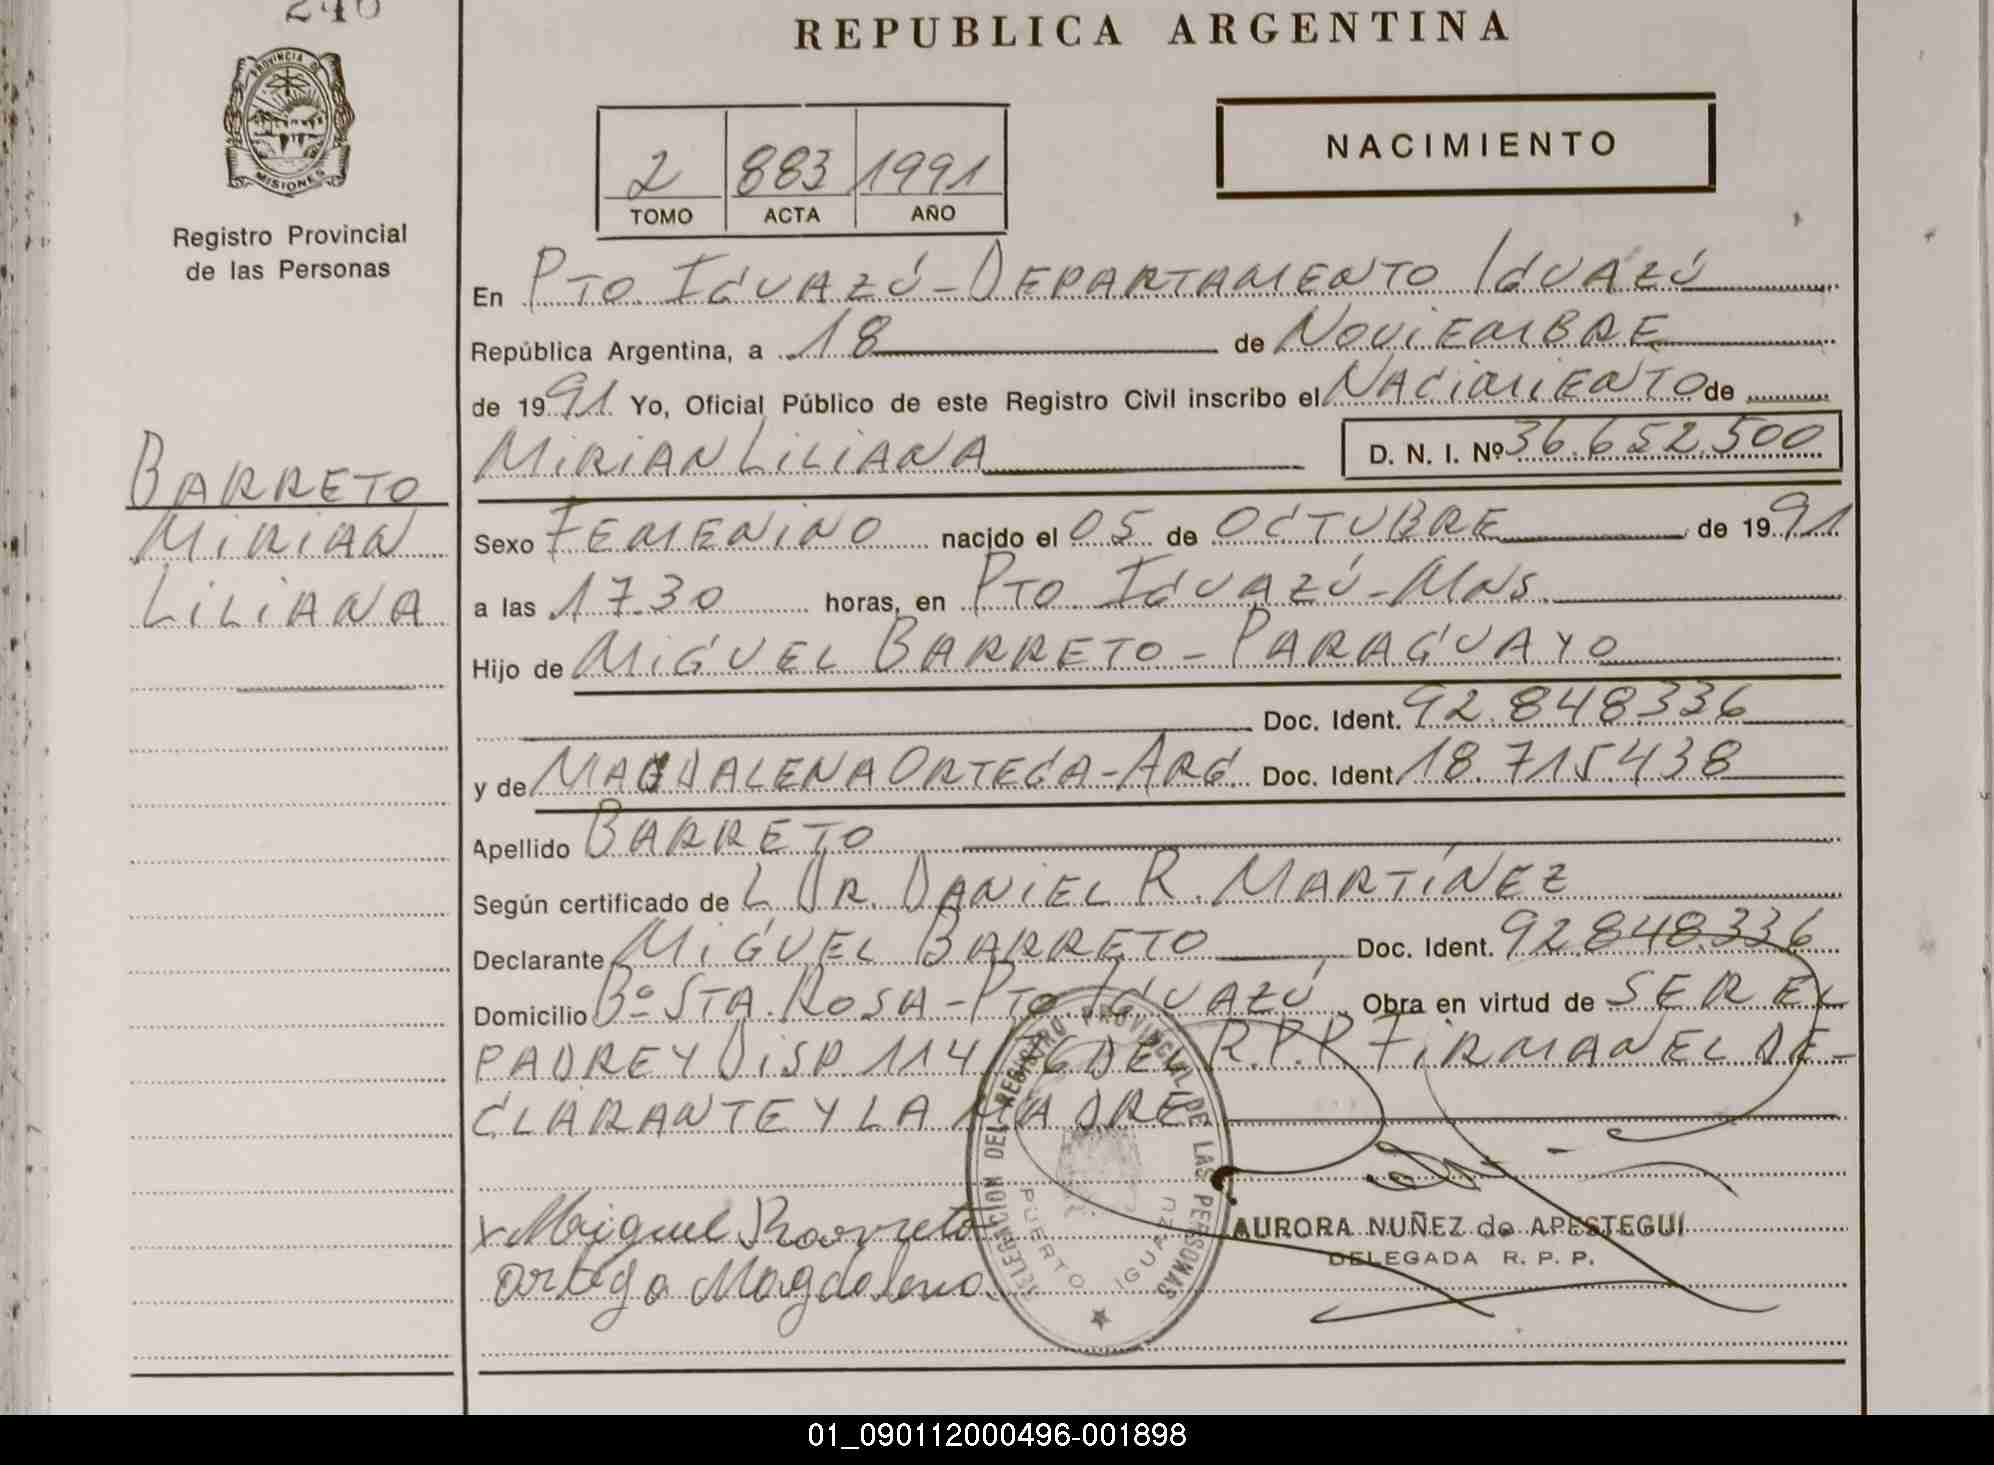 240
REPUBLICA ARGENTINA
PROVINCIA DE
MISIONES
Registro Provincial
de las Personas
2 883 1991
TOMO ACTA AÑO
NACIMIENTO
En PTO IGUAZÚ - DEPARTAMENTO IGUAZÚ
República Argentina, a 18 de NOVIEMBRE
de 1991 Yo, Oficial Público de este Registro Civil inscribo el NACIMIENTO de
MIRIAN LILIANA D. N. I. Nº 36.652.500
BARRETO
MIRIAN
LILIANA
Sexo FEMENINO nacido el 05 de OCTUBRE de 1991
a las 1730 horas, en PTO IGUAZÚ - MNS.
Hijo de MIGUEL BARRETO - PARAGUAYO
Doc. Ident. 92.848336
y de MAGDALENA ORTEGA - ARG. Doc. Ident. 18.715.438
Apellido BARRETO
Según certificado de L DR. DANIEL R. MARTÍNEZ
Declarante MIGUEL BARRETO Doc. Ident. 92.848.336
Domicilio Bº STA. ROSA - PTO IGUAZÚ Obra en virtud de SER EL
PADRE Y DISP. 114 DEL R.P.P. FIRMAN EL DE-
CLARANTE Y LA MADRE
x Miguel Barreto
Ortega Magdalena
DELEGACION DEL REGISTRO PROVINCIAL DE LAS PERSONAS
PUERTO IGUAZU
AURORA NUÑEZ de APESTEGUI
DELEGADA R. P. P.
01_090112000496-001898